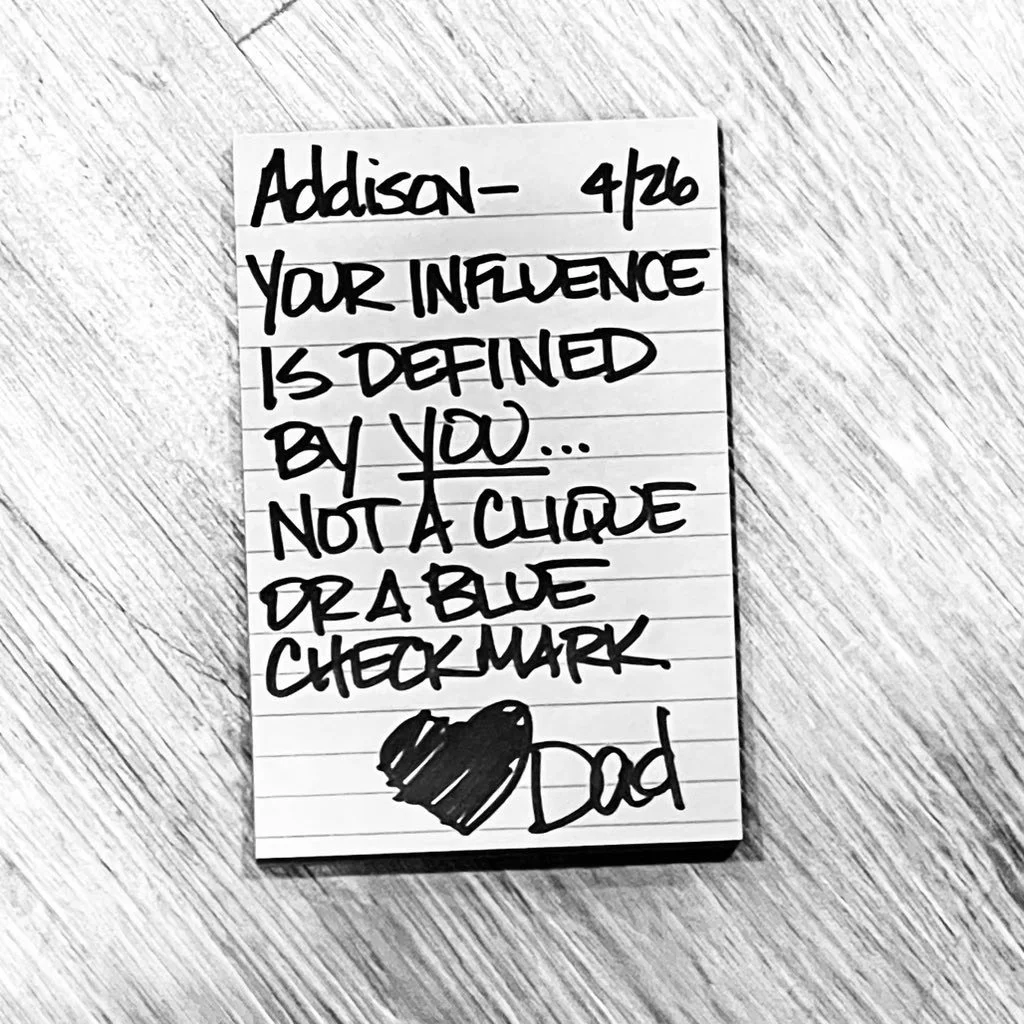 Addison- 4/26
YOUR INFLUENCE
IS DEFINED
BY YOU...
NOT A CLIQUE
OR A BLUE
CHECKMARK.
Dad